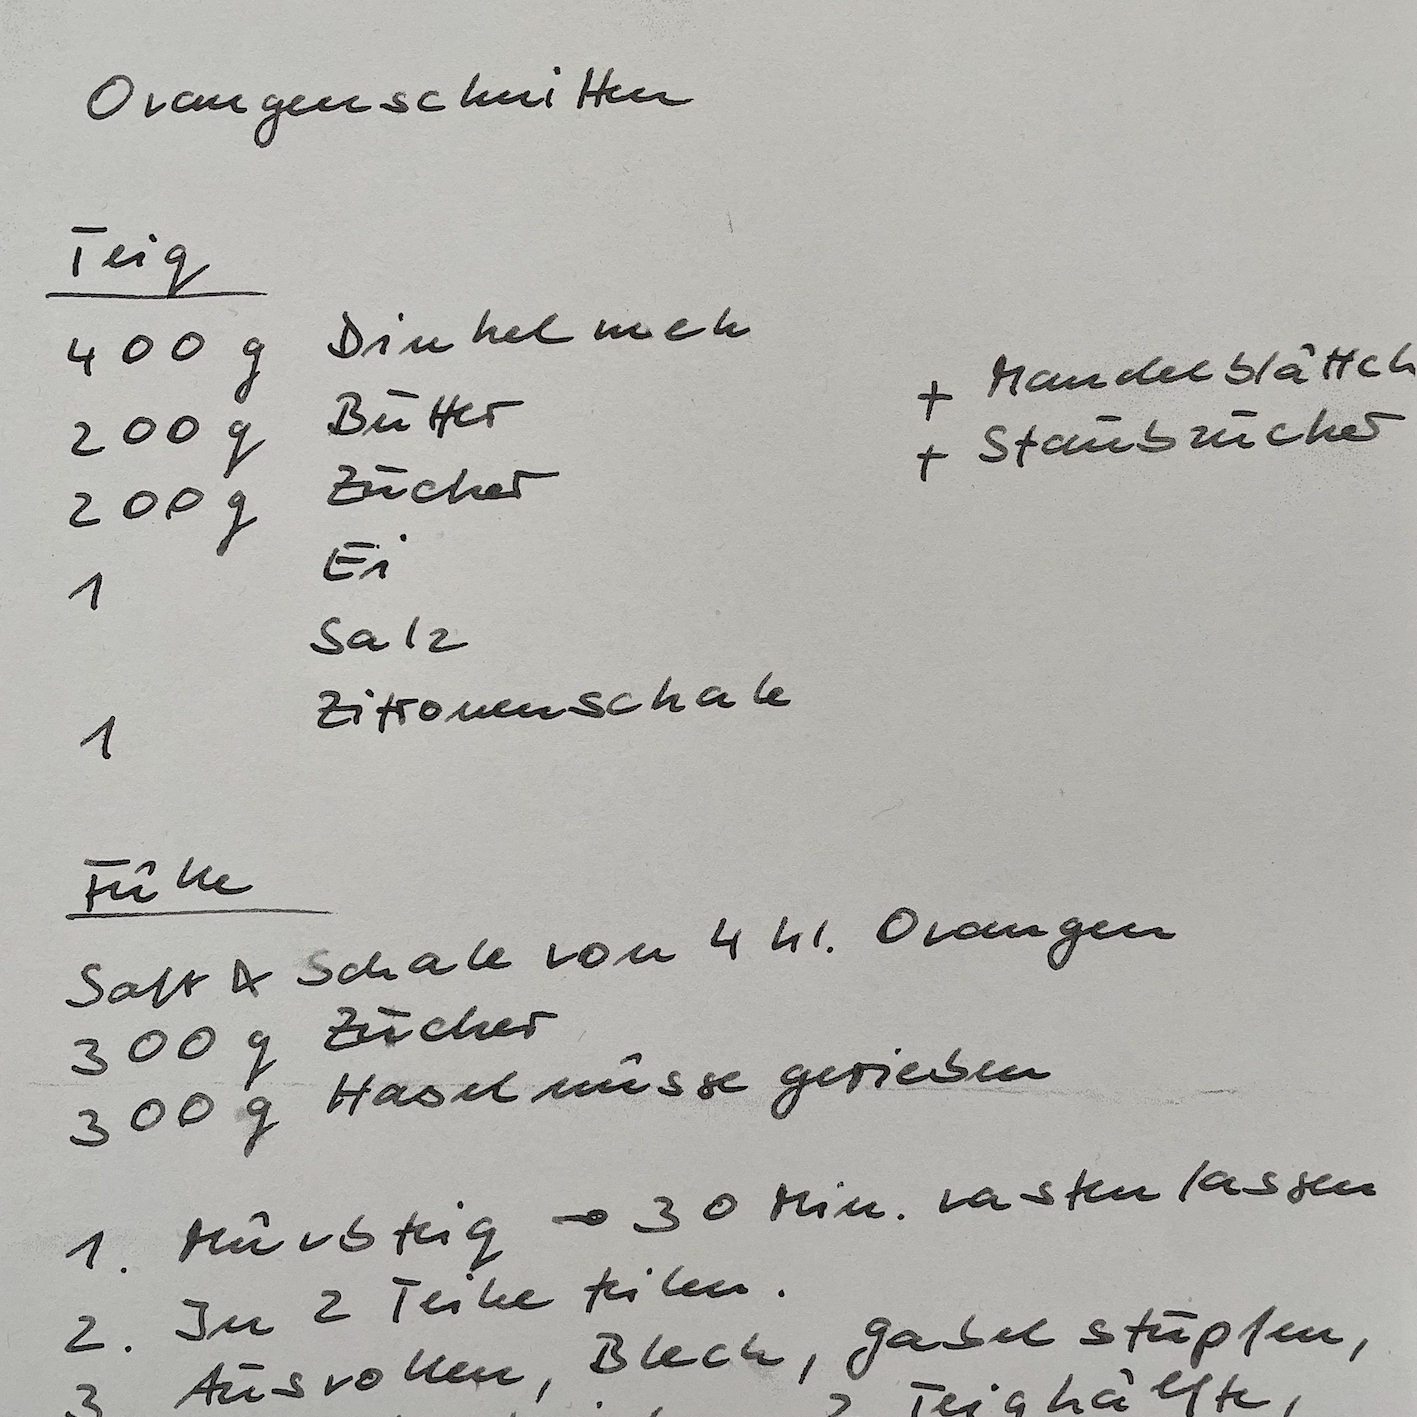 Orangenschnitten
Teig
400 g Dinkelmehl
200 g Butter
200 g Zucker
1 Ei
Salz
1 Zitronenschale
+ Mandelblättch
+ Staubzucker
Fülle
Saft & Schale von 4 kl. Orangen
300 g Zucker
300 g Haselnüsse gerieben
1. Mürbteig → 30 Min. rasten lassen
2. In 2 Teile teilen.
3 Ausrollen, Blech, Gabel stupfen,
2 Teighälfte,